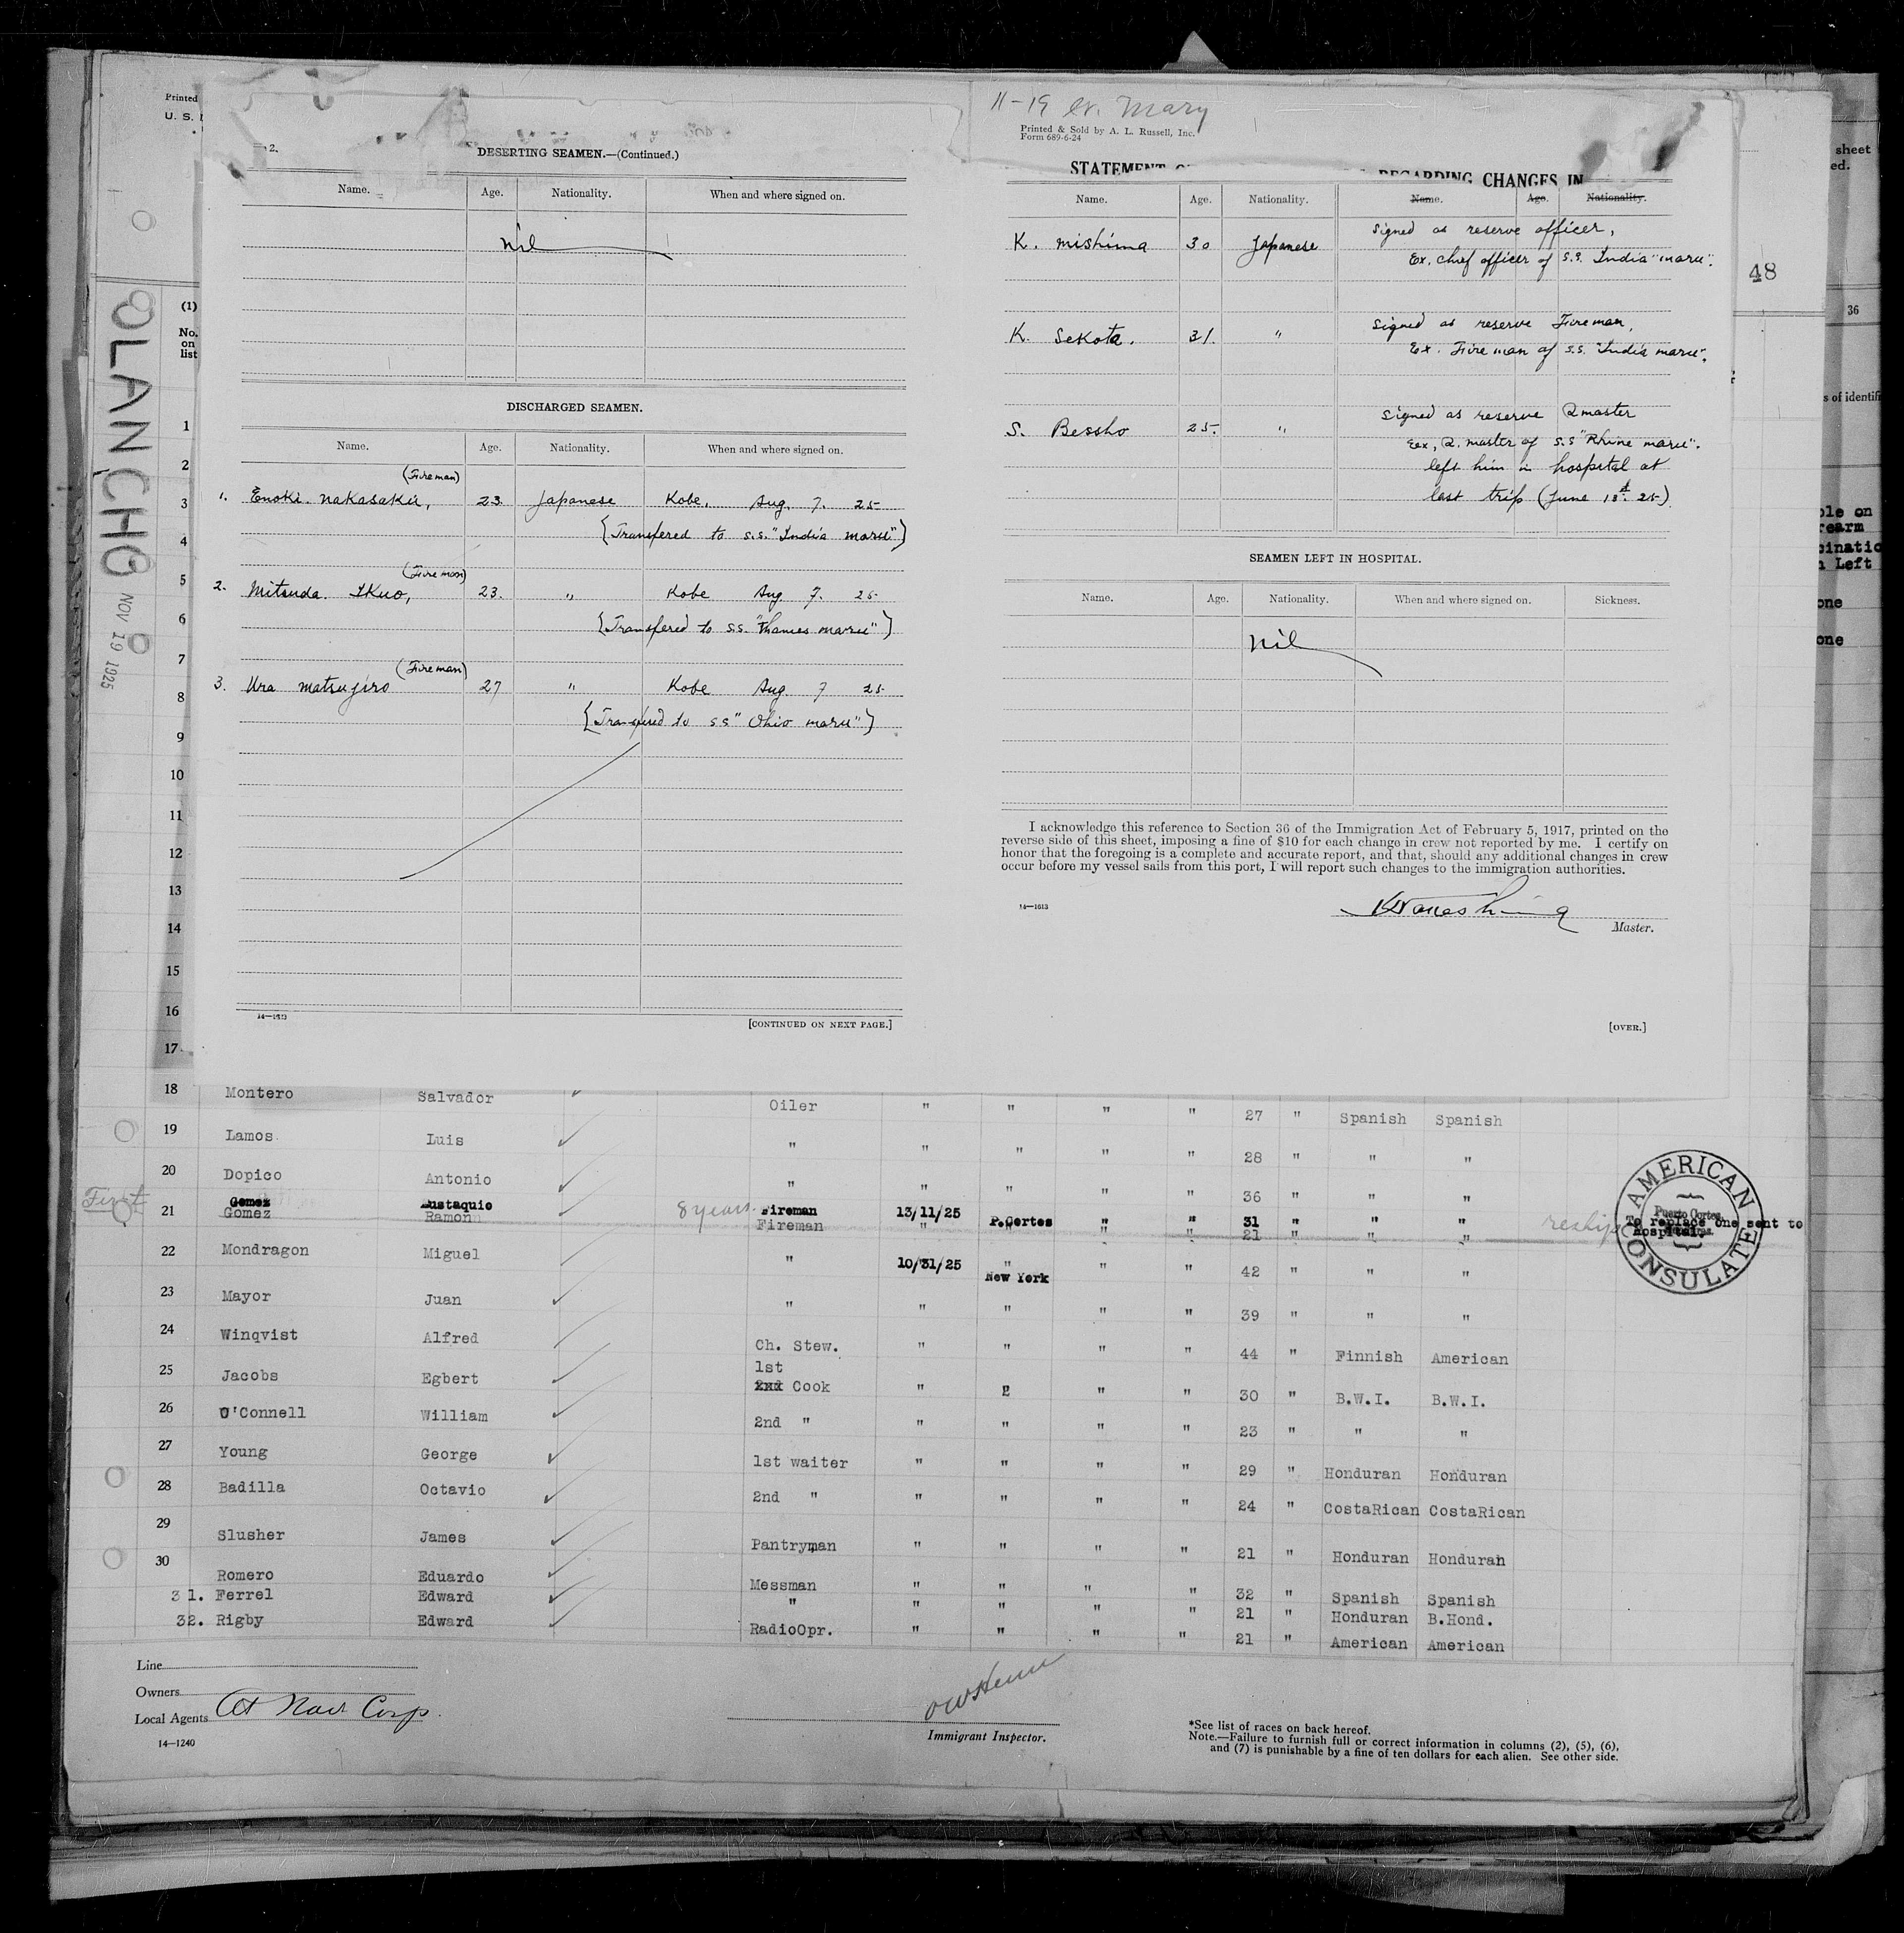 11-19 W. Mary
Printed & Sold by A. L. Russell, Inc.
Form 689-6-24
Printed
U. S.
2.
DESERTING SEAMEN.—(Continued.)
Name. Age. Nationality. When and where signed on.
nil
DISCHARGED SEAMEN.
Name. Age. Nationality. When and where signed on.
(Fireman)
1. Enoki Nakasaku, 23 Japanese Kobe, Aug. 7. 25
{Transfered to s.s. "India maru"}
(Fireman)
2. Mitsuda Ikuo, 23. " Kobe Aug 7. 25
{Transfered to s.s. "Thames maru"}
(Fireman)
3. Ura Matsujiro 27 " Kobe Aug 7 25
{Transfered to ss "Ohio maru"}
14—1613
[CONTINUED ON NEXT PAGE.]
STATEMENT REGARDING CHANGES IN
Name. Age. Nationality. Name. Age. Nationality.
K. Mishima 30 Japanese Signed as reserve officer,
Ex. chief officer of s.s. India "maru".
K. Sekota. 31. " Signed as reserve Fireman,
Ex. Fireman of s.s. "India maru".
S. Bessho 25. " Signed as reserve Q master
Eex, Q. master of s.s "Rhine maru".
left him in hospital at
last trip (June 13th 25).
SEAMEN LEFT IN HOSPITAL.
Name. Age. Nationality. When and where signed on. Sickness.
nil
I acknowledge this reference to Section 36 of the Immigration Act of February 5, 1917, printed on the
reverse side of this sheet, imposing a fine of $10 for each change in crew not reported by me. I certify on
honor that the foregoing is a complete and accurate report, and that, should any additional changes in crew
occur before my vessel sails from this port, I will report such changes to the immigration authorities.
14—1613
Master.
[OVER.]
48
sheet
ed.
36
s of identifi
ble on
rearm
cinatio
n Left
one
one
OLANCHO NOV 19 1925
(1)
No.
on
list
1
2
3
4
5
6
7
8
9
10
11
12
13
14
15
16
17
18 Montero Salvador Oiler " " " " 27 " Spanish Spanish
19 Lamos Luis " " " " " 28 " " "
20 Dopico Antonio " " " " " 36 " " "
First
Gomez Eustaquio 8 years Fireman 13/11/25 P.Cortes " " 31 " " " To replace one sent to
hospital.
21 Gomez Ramon Fireman " " " " 21 " " " reship
22 Mondragon Miguel " 10/31/25 " " " 42 " " "
New York
23 Mayor Juan " " " " " 39 " " "
24 Winqvist Alfred Ch. Stew. " " " " 44 " Finnish American
1st
25 Jacobs Egbert 2nd Cook " " " " 30 " B.W.I. B.W.I.
26 O'Connell William 2nd " " " " " 23 " " "
27 Young George 1st waiter " " " " 29 " Honduran Honduran
28 Badilla Octavio 2nd " " " " " 24 " CostaRican CostaRican
29 Slusher James Pantryman " " " " 21 " Honduran Honduran
30 Romero Eduardo Messman " " " " 32 " Spanish Spanish
31. Ferrel Edward " " " " " 21 " Honduran B.Hond.
32. Rigby Edward RadioOpr. " " " " 21 " American American
AMERICAN CONSULATE
Puerto Cortes,
Line
Owners
Local Agents At Nav Corp.
14—1240
Immigrant Inspector.
*See list of races on back hereof.
Note.—Failure to furnish full or correct information in columns (2), (5), (6),
and (7) is punishable by a fine of ten dollars for each alien. See other side.